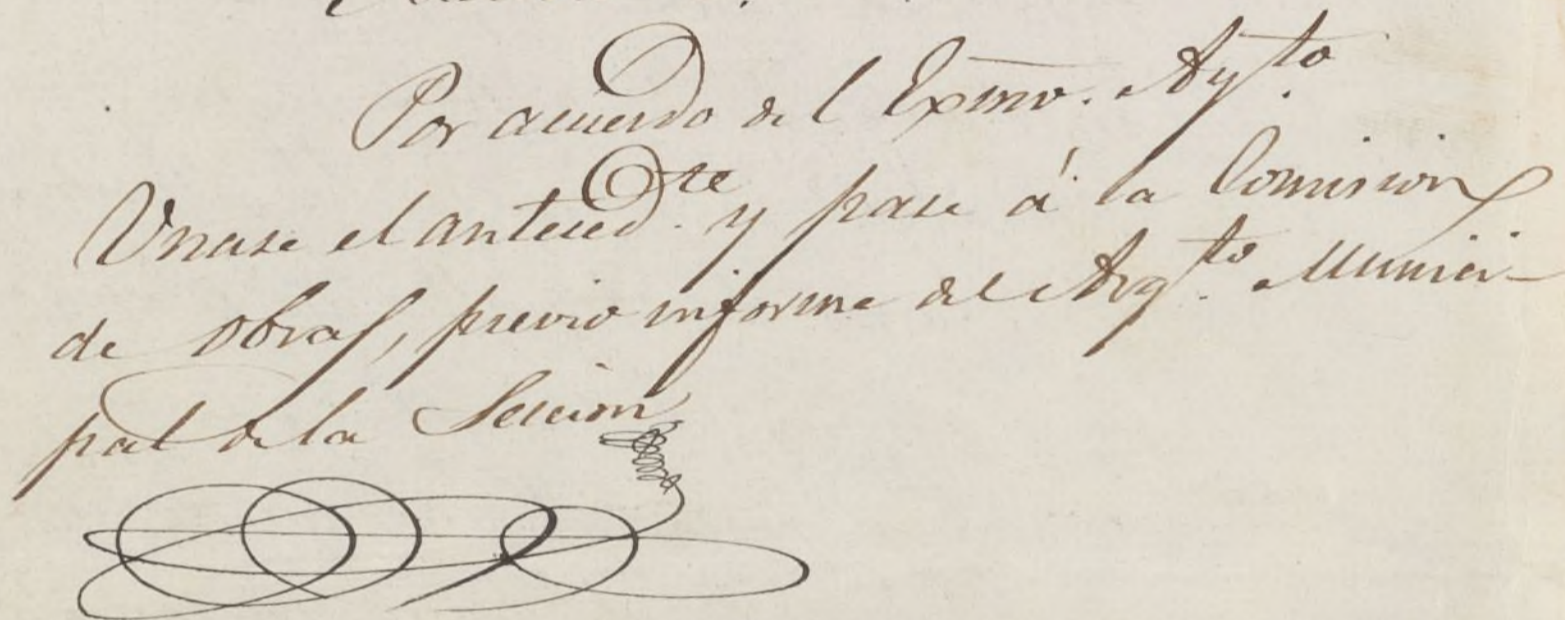 Por acuerdo del Exmo. Ayto.
Unase el anteced.te y pase á la Comision
de obras, previo informe del Arqto. Munici-
pal de la Seccion